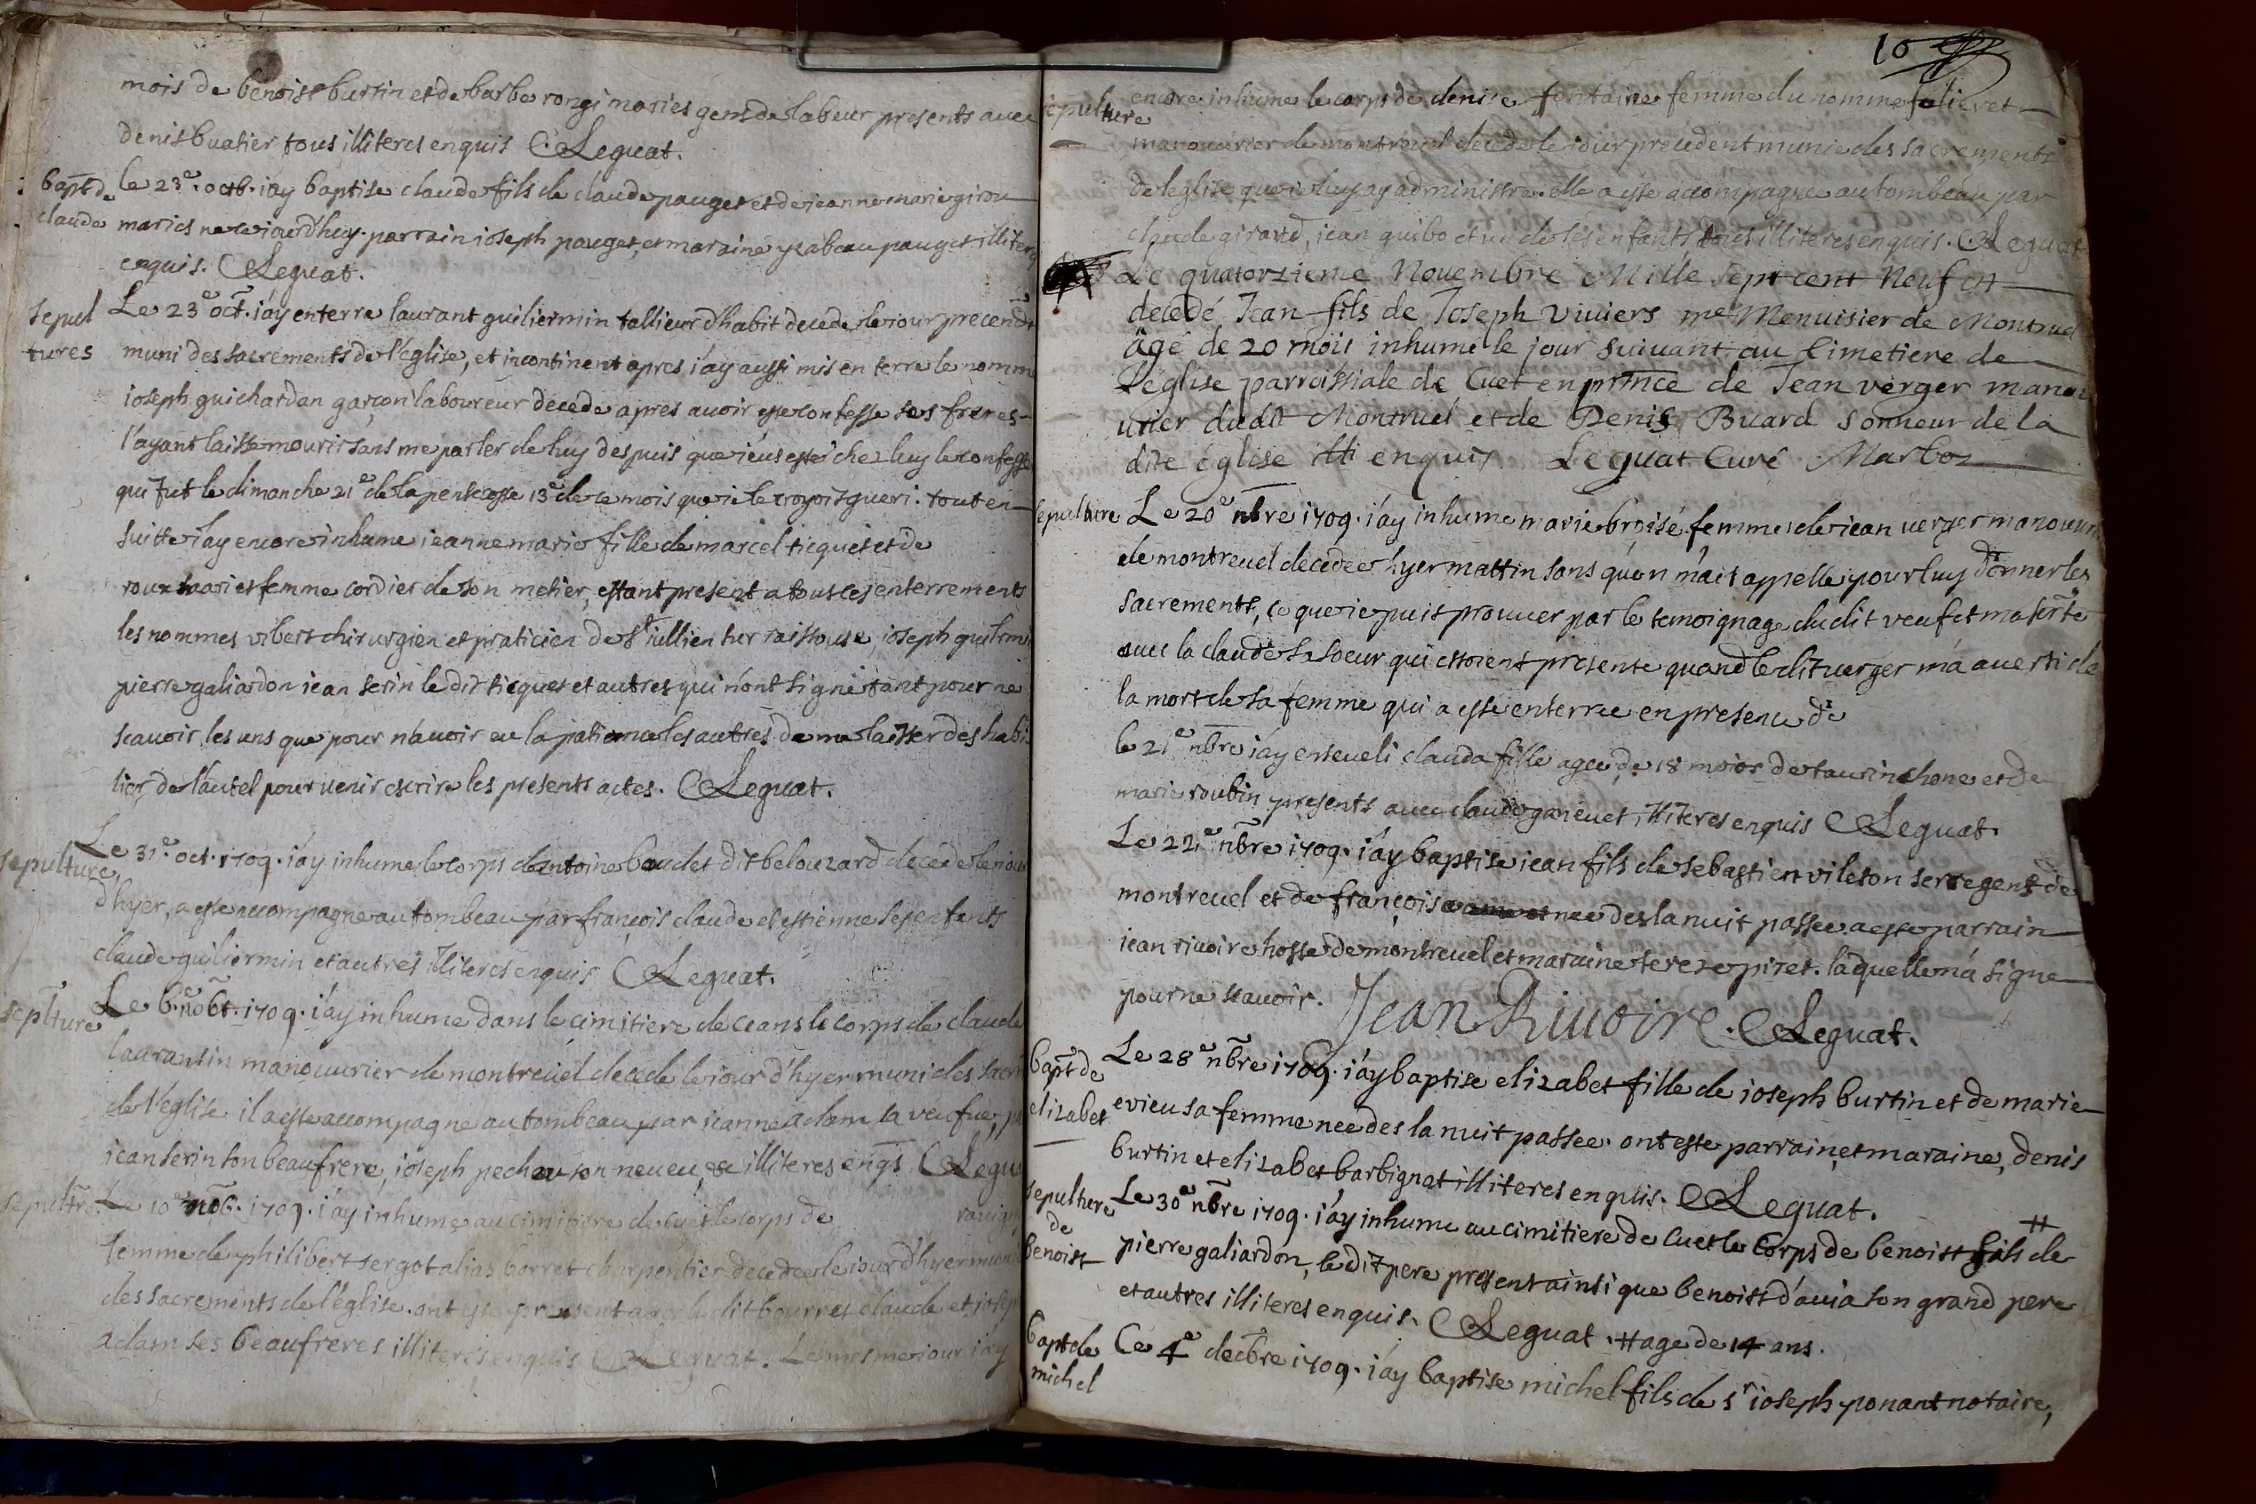 mois de benoist burtin et de barbe rongi maries gens de labeur presents avec
denis buatier tous illiteres enquis CLeguat.
bapt de
claude
le 23e. octb. i'ay baptise claude fils de claude pauget et de jeanne marie girou
maries ne ce iourd'huy. parrain ioseph pauget, et maraine ysabeau pauget illiteres
enquis. CLeguat.
sepul
tures
Le 23e oct. i'ay enterre laurant guiliermin tallieur d'habit decede le iour precend
muni des sacrements de l'eglise, et incontinent apres i'ay aussi mis en terre le nomme
ioseph guichardan garçon laboureur decede apres avoir este confesse ses freres
l'ayant laisse mourir sans me parler de luy despuis que i'eus esté chez luy le confesse
qui fut le dimanche 21e de la pentecoste 13e de ce mois que ie le croyois gueri. tout en
suitte i'ay encore inhume ieanne marie fille de marcel ticquet et de
roux mari et femme cordier de son metier, estant present a tous ces enterrements
les nommes vibert chirurgien et praticien de st iullien sur raissouse, ioseph guilrmin
pierre galiardon iean serin le dit ticquet et autres qui n'ont signé tant pour ne
scavoir les uns que pour n'avoir eu la patience les autres de me laisser deshabi
lier de l'autel pour venir escrire les presents actes. CLeguat.
sepulture
Le 31e. oct. 1709. i'ay inhume le corps d'antoine boudet dit belouzard decede le iour
d'hyer, a este accompagne au tombeau par françois claude et estienne ses enfants
claude guiliermin et autres illiteres enquis CLeguat.
seplture
Le 6e. nobt. 1709. i'ay inhume dans le cimitiere de ceans le corps de claude
lauransin manouvrier de montreuel decede le iour d'hyer muni des sacr
de l'eglise il a este accompagne au tombeau par ieanne adam sa veufue, p
iean serin son beaufrere, ioseph pechou son neveu, &c illiteres enqs CLegu
sepultre
Le 10e nob. 1709. i'ay inhume au cimitiere de cuet le corps de ravign
femme de philibert sergot alias borret charpentier decedee le iour d'hyer muni
des sacrements de l'eglise. ont este present avec le dit bourret claude et ioseph
adam ses beaufreres illiteres enquis CLeguat. Le mesme iour i'ay
10
sepulture
encore inhume le corps de denise fontaine femme du nomme foliet
manouvrier de montreuel decede le iour precedent munie des sacrements
de l'eglise que ie luy ay administre. elle a este accompagne au tombeau par
claude girard, jean guibo et un de ses enfants tous illiteres enquis. CLeguat
Le quatorzieme Novembre Mille sept cent Neuf est
decedé Jean fils de Joseph viviers me Menuisier de Montruel
âgé de 20 mois inhumé le jour suivant au Cimetiere de
L'église parroissiale de Cuet en prnce de Jean verger manou
urier dudit Montruel et de Denis Buard sonneur de la
dite église illi enquis Leguat Curé Marboz
sepulture
Le 20e nbre 1709. i'ay inhume marie broisé femme de iean verger manouvri
de montreuel decedee hyer mattin sans qu'on m'ait appelle pour luy donner les
sacrements, ce que ie puis prouver par le temoignage du dit veuf et ma serte
avec la claude sa soeur qui estoient presente quand le dit verger m'a averti de
la mort de sa femme qui a este enterree en presence de
le 21e nbre i'ay enseveli clauda fille agee de 18 mois de taurin chone et de
marie roubin presents avec claude ganevet, illiteres enquis CLeguat.
Le 22e nbre 1709. i'ay baptise iean fils de sebastien vileton serregent de
montreuel et de françoise nee des la nuit passee a este parrain
iean rivoire hoste de montreuel et maraine tereze piret. laquelle n'a signe
pour ne scavoir. Jean Rivoire. CLeguat.
bapt de
elizabet
Le 28e nbre 1709. i'ay baptise elizabet fille de ioseph burtin et de marie
evieu sa femme nee des la nuit passee. ont este parrain, et maraine, denis
burtin et elizabet barbignat illiteres enquis. CLeguat.
sepulture
de
benoist
Le 30e nbre 1709. i'ay inhume au cimitiere de Cuet le Corps de benoist fils # de
pierre galiardon, le dit pere present ainsi que benoist d'avia son grand pere
et autres illiteres enquis. CLeguat. # age de 14 ans.
bapt de
michel
Ce 4e decbre 1709. i'ay baptise michel fils de sr ioseph ponant notaire,